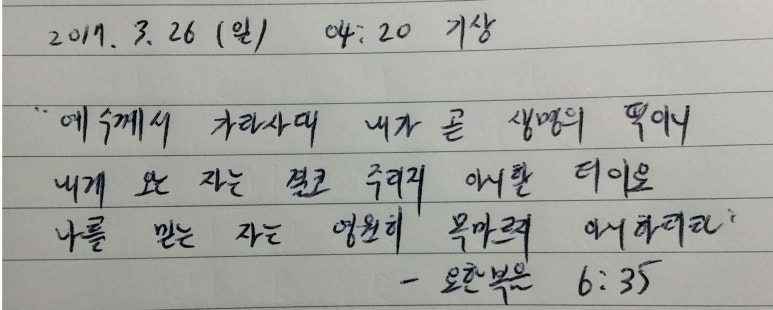 2017. 3. 26 (일) 04:20 기상
"예수께서 가라사대 내가 곧 생명의 떡이니
내게 오는 자는 결코 주리지 아니할 터이요
나를 믿는 자는 영원히 목마르지 아니하리라"
- 요한복음 6:35